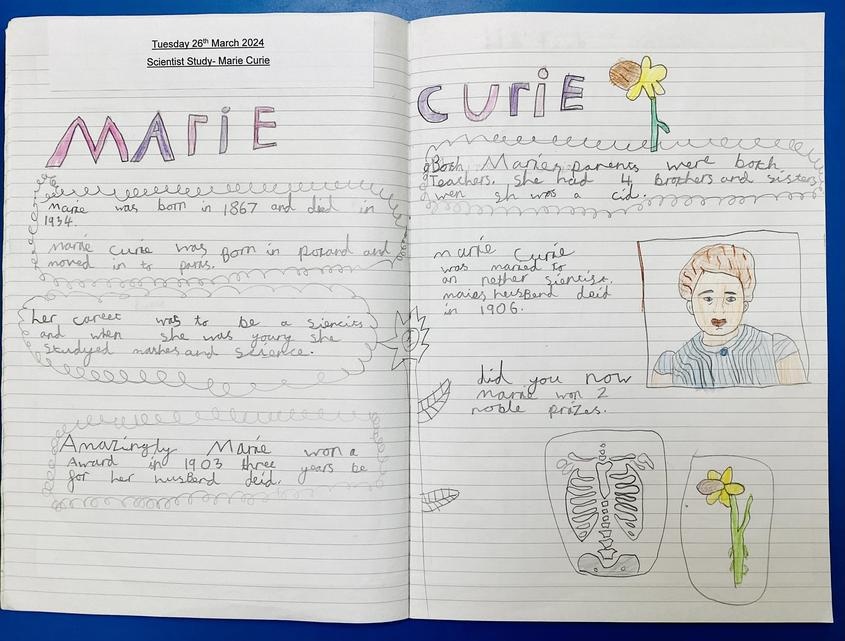 Tuesday 26th March 2024
Scientist Study- Marie Curie
MARiE
Marie was born in 1867 and died in
1934.
Marie Curie was Born in poland and
moved in to paris.
her career was to be a siencits
and when she was young she
studyed mathes and science.
Amazingly Marie won a
Award in 1903 three years be
for her husBend deid.
CUriE
Both Maries parents were both
Teachers. She had 4 Brothers and sisters
wen sh was a cid.
marie Curie
was maried to
an nother sientist.
maies husBend deid
in 1906.
did you now
marie won 2
noble prizes.